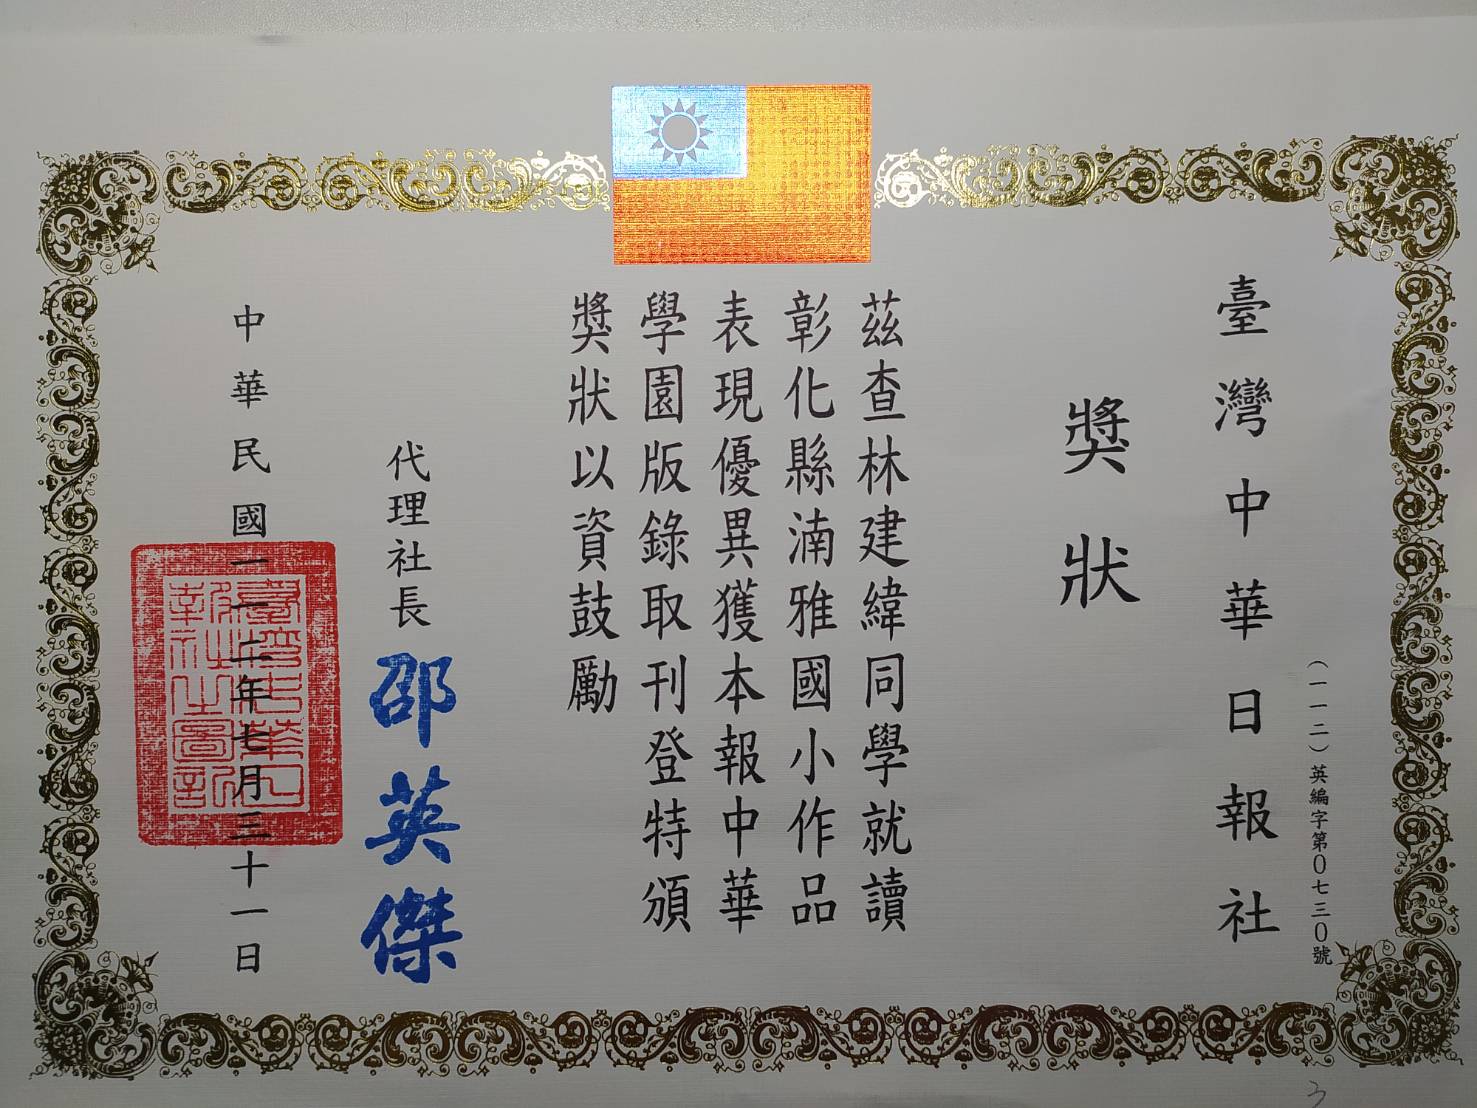 臺灣中華日報社
（一一二）英編字第0七三0號
獎狀
茲查林建緯同學就讀
彰化縣湳雅國小作品
表現優異獲本報中華
學園版錄取刊登特頒
獎狀以資鼓勵
代理社長
邵英傑
中華民國一一二年七月三十一日
臺灣中華日
報社之圖記